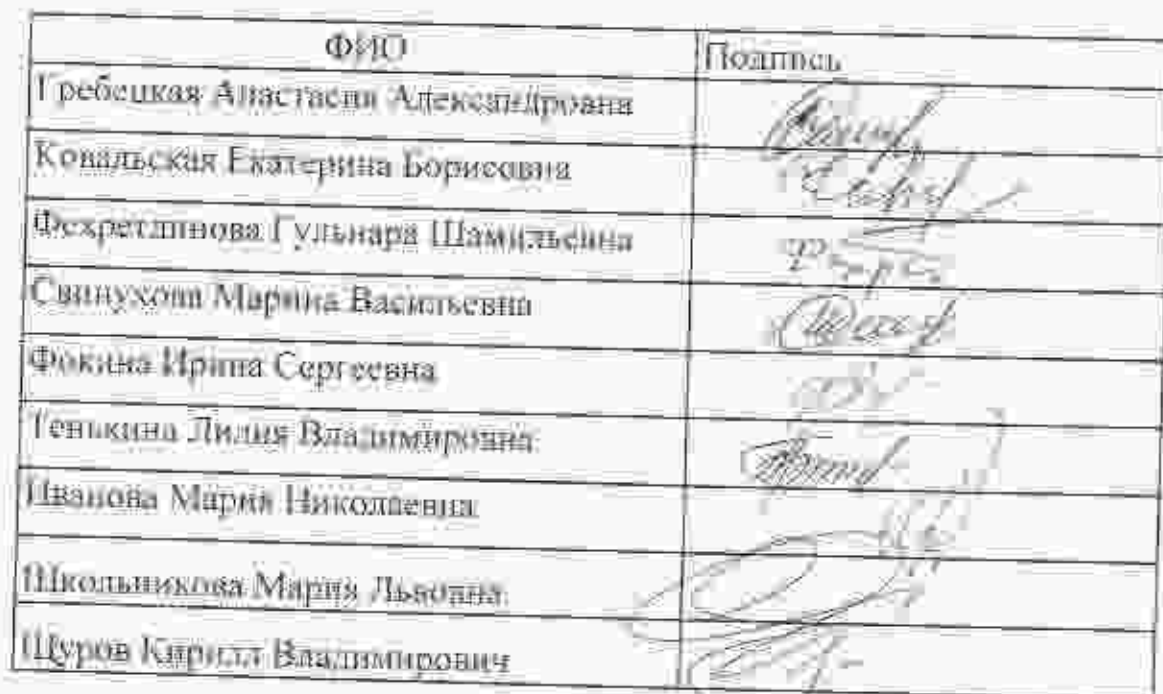 ФИО Подпись
Гребецкая Анастасия Александровна
Ковальская Екатерина Борисовна
Фехретдинова Гульнара Шамильевна
Свинухова Марина Васильевна
Фокина Ирина Сергеевна
Тенькина Лилия Владимировна
Иванова Мария Николаевна
Школьникова Мария Львовна
Щуров Кирилл Владимирович